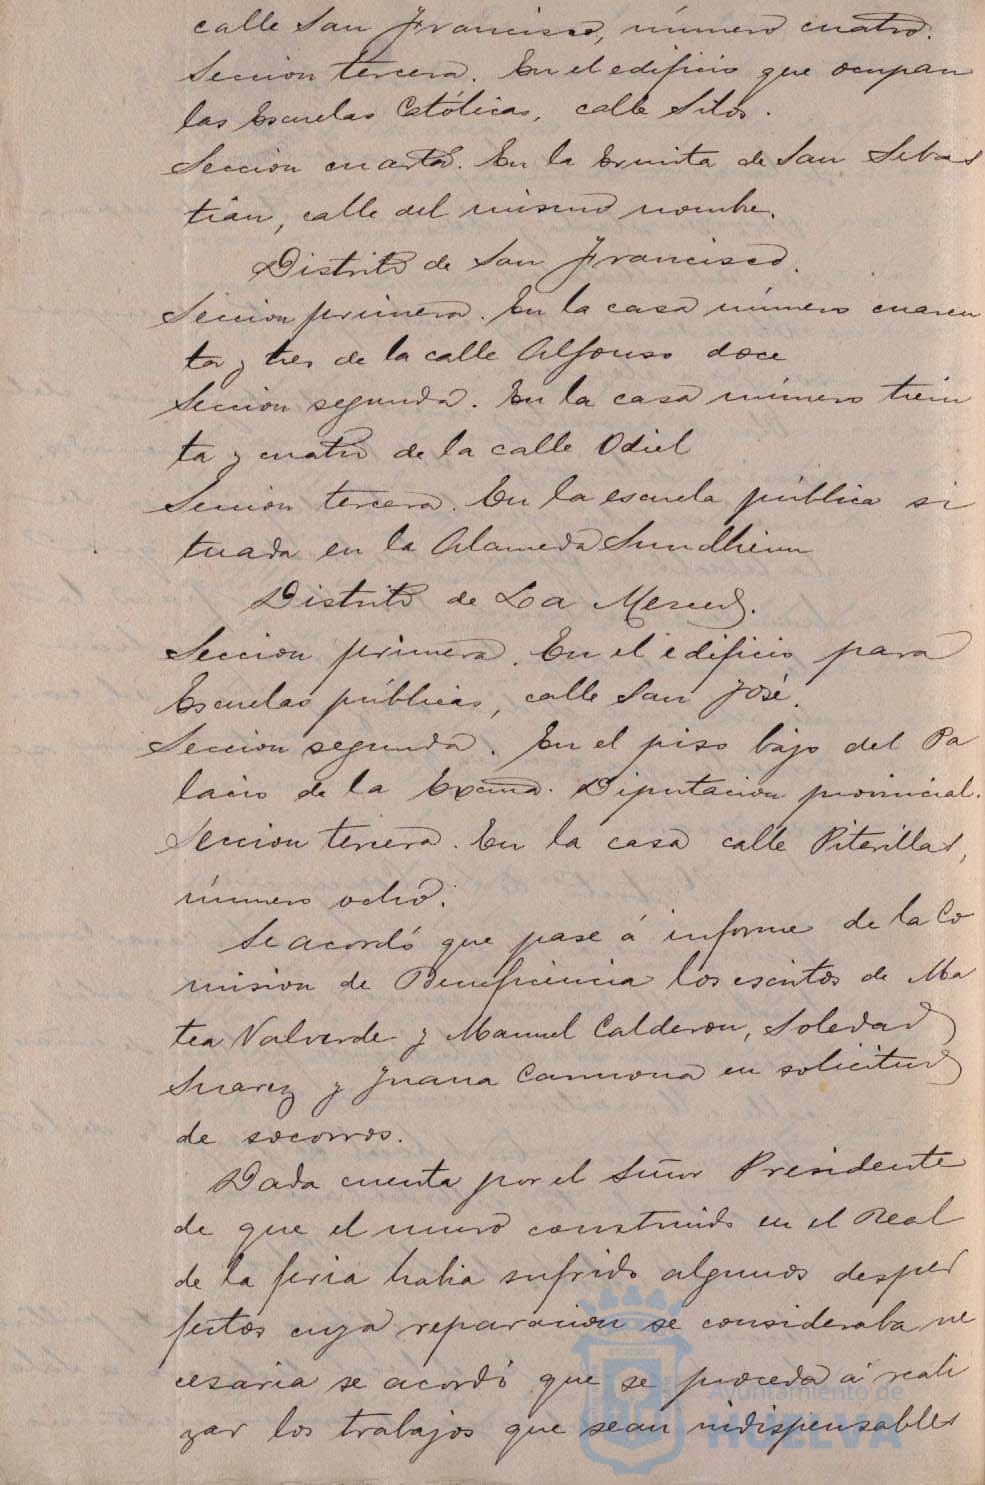 calle San Francisco, número cuatro.
Seccion tercera. En el edificio que ocupan
las Escuelas Católicas, calle Silos.
Seccion cuarta. En la Ermita de San Sebas
tián, calle del mismo nombre.
Distrito de San Francisco.
Seccion primera. En la casa número cuaren
ta y tres de la calle Alfonso doce
Seccion segunda. En la casa número trein
ta y cuatro de la calle Odiel
Seccion tercera. En la escuela pública si
tuada en la Alameda Sundheim
Distrito de La Merced.
Seccion primera. En el edificio para
Escuelas públicas, calle San José.
Seccion segunda. En el piso bajo del Pa
lacio de la Excma. Diputacion provincial.
Seccion tercera. En la casa calle Piterillas,
número ocho.
Se acordó que pase á informe de la Co
mision de Beneficencia los escritos de Ma
tea Valverde y Manuel Calderon, Soledad
Suarez y Juana Carmona en solicitud
de socorros.
Dada cuenta por el Señor Presidente
de que el muro construido en el Real
de la feria habia sufrido algunos desper
fectos cuya reparacion se consideraba ne
cesaria se acordó que se proceda á reali
zar los trabajos que sean indispensables
ET TERRAE
Ayuntamiento de
HUELVA